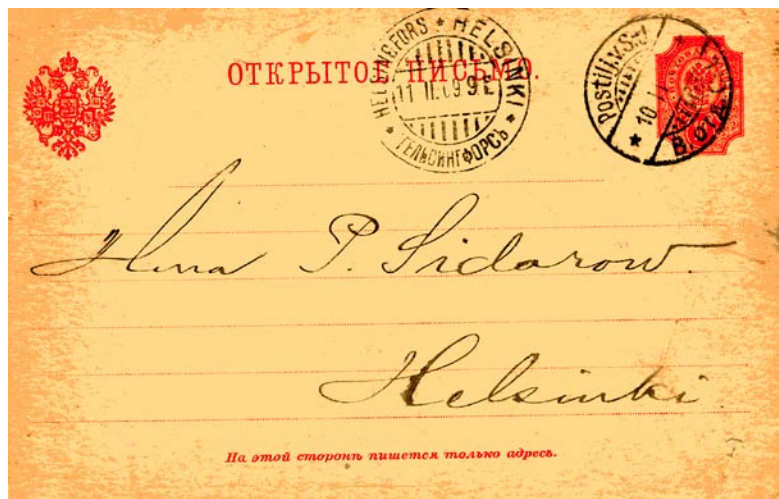 ОТКРЫТОЕ ПИСЬМО.
HELSINGFORS * HELSINKI *
11 II.09 9
ГЕЛЬСИНГФОРСЪ
Postilj.v.S:
10
В. ОТД
P. Sidorow.
Helsinki
На этой сторонѣ пишется только адресъ.